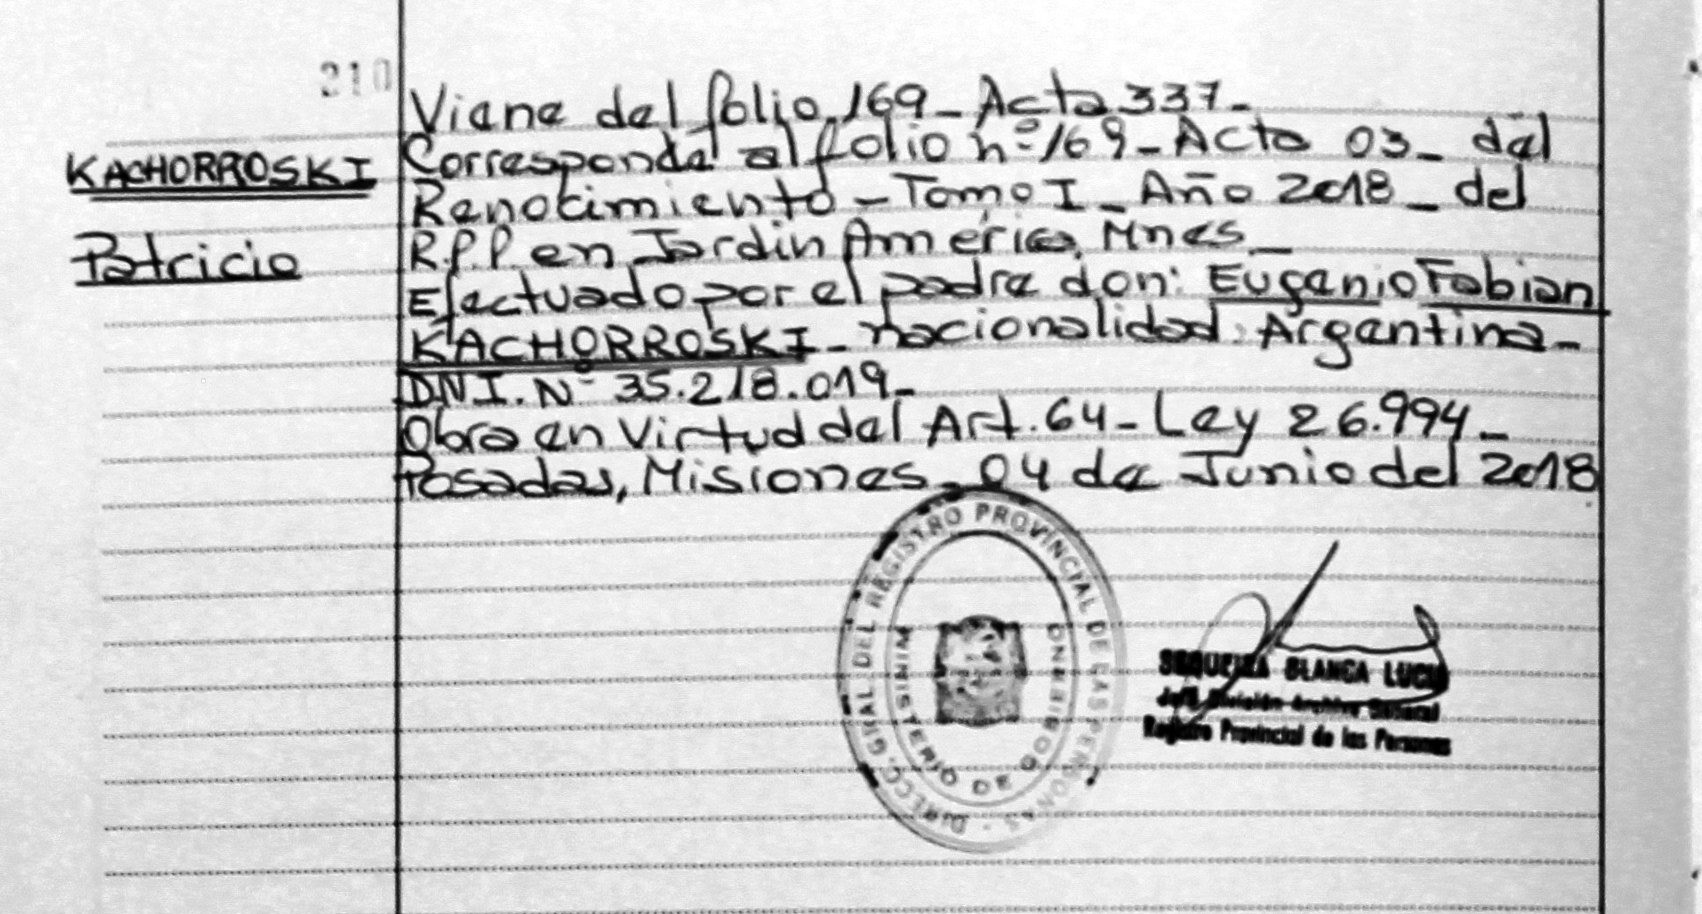 210
Viene del folio 169_ Acta 337_
Corresponde al folio nº 169_ Acta 03_ del
KACHORROSKI
Renocimiento - Tomo I_ Año 2018_ del
R.P.P en Jardin America, Mnes_
Patricio
Efectuado por el padre don: Eugenio Fabian
KACHORROSKI_ nacionalidad: Argentina_
DNI. Nº 35.218.019_
Obra en Virtud del Art. 64_ Ley 26.994_
Posadas, Misiones_ 04 de Junio del 2018
DIRECC. GRAL DEL REGISTRO PROVINCIAL DE LAS PERSONAS -
MINISTERIO DE GOBIERNO
SEQUEIRA BLANCA LUCIA
Jefe División Archivo General
Registro Provincial de las Personas